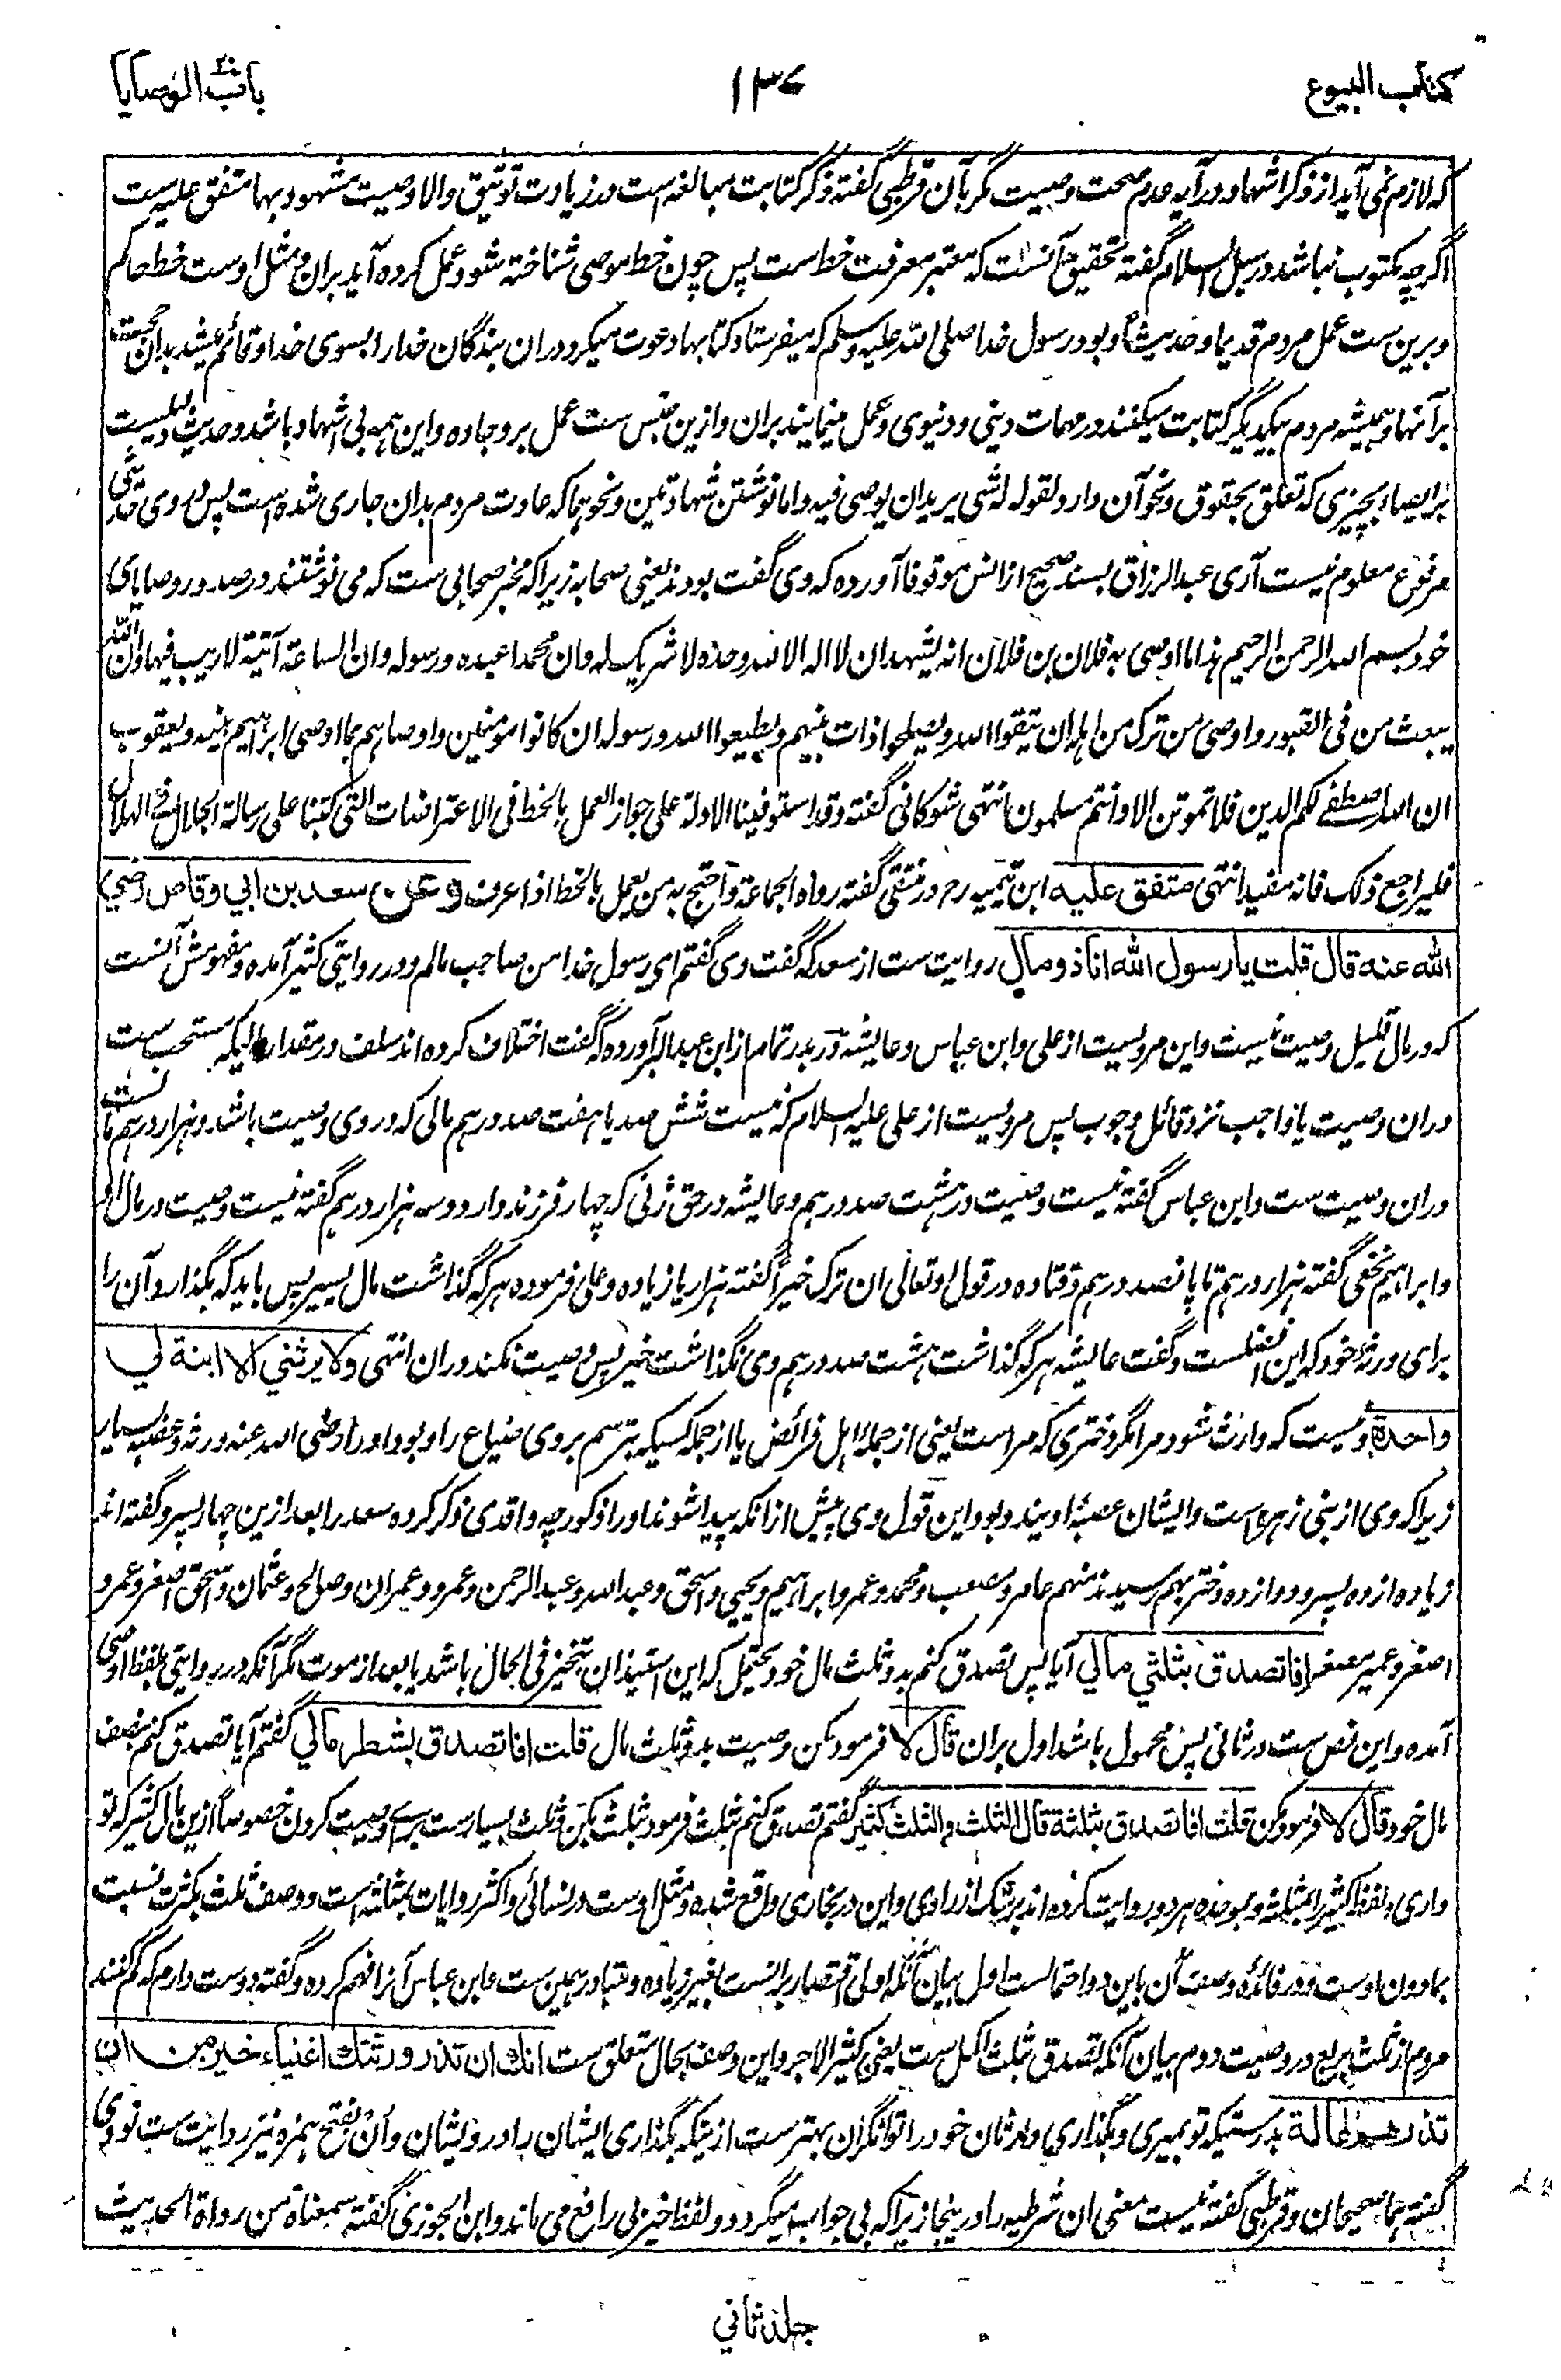 كتاب البيوع
١٣٧
باب الوصايا
که لازم نمی آید از ذکر اشهاد در آیه عدم صحت وصیت مگر بآن قرطبی گفته ذکر کتابت مبالغه است در زیادت توثیق والا وصیت مشهود بها متفق علیه ست
اگرچه مکتوب نباشد در سبل السلام گفته تحقیق آنست که معتبر معرفت خط ست پس چون خط موصی شناخته شود عمل کرده آید بران و مثل اوست خط حاکم
و برین ست عمل مردم قدیما و حدیثا و بود رسول خدا صلی الله علیه وسلم که میفرستاد کتابها دعوت میکرد دران بندگان خدا را بسوی خدا و قائم میشد بدان حجت
بر آنها و همیشه مردم بیکدیگر کتابت میکنند در مهمات دینی و دنیوی و عمل مینمایند بران و ازین جنس ست عمل بر وجاده و این همه بی اشهاد باشد و حدیث دلیلست
بر ایصاء بچیزی که تعلق بحقوق و نحو آن دارد لقوله له شی یرید ان یوصی فیه و اما نوشتن شهادتین و نحوهما که عادت مردم بدان جاری شده است پس در وی حدیثی
مرفوع معلوم نیست آری عبدالرزاق بسند صحیح از انس موقوفا آورده که وی گفت بودند یعنی صحابه زیرا که مخبر صحابی ست که می نوشتند در صدور وصایای
خود بسم الله الرحمن الرحیم هذا ما اوصی به فلان بن فلان انه یشهد ان لا اله الا الله وحده لا شریک له وان محمدا عبده ورسوله وان الساعة آتیة لا ریب فیها وان الله
یبعث من فی القبور و اوصی من ترک من اهله ان یتقوا الله ویصلحوا ذات بینهم ویطیعوا الله ورسوله ان کانوا مومنین و اوصاهم بما اوصی ابراهیم بنیه ویعقوب
ان الله اصطفی لکم الدین فلا تموتن الا وانتم مسلمون انتهی شوکانی گفته وقد استوفینا الادلة علی جواز العمل بالخط فی الاعتراضات التی کتبنا علی رسالة الجلال فی الهلال
فلیراجع ذلک فانه مفید انتهی متفق علیه ابن تیمیه رح در منتقی گفته رواه الجماعة واحتج به من یعمل بالخط اذا عرف وعن سعد بن ابي وقاص رضي
الله عنه قال قلت يا رسول الله انا ذو مال روایت ست از سعد که گفت وی گفتم ای رسول خدا من صاحب مالم و در روایتی کثیر آمده و مفهومش آنست
که در مال قلیل وصیت نیست و این مرویست از علی و ابن عباس و عایشه و در بدر تمام از ابن عبدالبر آورده که گفت اختلاف کرده اند سلف در مقدار مالیکه مستحب ست
دران وصیت یا واجب نزد قائل وجوب پس مرویست از علی علیه السلام که نیست شش صد یا هفت صد درهم مالی که در وی وصیت باشد و هزار درهم مالیست
دران وصیت ست و ابن عباس گفته نیست وصیت در هشت صد درهم و عایشه در حق زنی که چهار فرزند دارد و سه هزار درهم گفته نیست وصیت در مال او
و ابراهیم نخعی گفته هزار درهم تا پانصد درهم و قتاده در قول او تعالی ان ترک خیرا گفته هزار یا زیاده و علی فرموده هر که گذاشت مال یسیر پس باید که بگذارد آن را
برای ورثه خود که این افضلست و گفت عایشه هر که گذاشت هشت صد درهم وی نگذاشت خیر پس وصیت نکند دران انتهی ولا يرثني الا ابنة لي
واحدة و نیست که وارث شود مرا مگر دختری که مراست یعنی از جمله اهل فرائض یا از جمله کسیکه بترسم بر وی ضیاع را و بود او را رضی الله عنه ورثه و عصبه بسیار
زیرا که وی از بنی زهره است و ایشان عصبه اویند و بود این قول وی پیش ازانکه پیدا شوند او را ذکور چه واقدی ذکر کرده سعد را بعد ازین چهار پسر و گفته اند
زیاده از ده پسر و دوازده دختر بهم رسیدند منهم عامر و مصعب و محمد و عمر و ابراهیم و یحیی و اسحق و عبدالله و عبدالرحمن و عمرو و عمران و صالح و عثمان و اسحق اصغر و عمرو
اصغر و عمیر مصغرا افاتصدق بثلثي مالي آیا پس تصدق کنم بدو ثلث مال خود و یحتمل که این استیذان بتنجیز فی الحال باشد یا بعد از موت مگر آنکه در روایتی بلفظ اوصی
آمده و این نص ست در ثانی پس محمول باشد اول بران قال لا فرمود مکن وصیت بدو ثلث مال قلت افاتصدق بشطر مالي گفتم آیا تصدق کنم نصف
مال خود قال لا فرمود مکن قلت افاتصدق بثلثة قال الثلث والثلث كثير گفتم تصدق کنم بثلث فرمود بثلث بکن و ثلث بسیارست برای وصیت کردن خصوصا ازین مال کثیر که تو
داری و لفظ کثیر را بمثلثه و بموحده هر دو روایت کرده اند بر شک از راوی و این در بخاری واقع شده و مثل اوست در نسائی و اکثر روایات بمثلثه است و وصف ثلث بکثرت نسبت
بمادون اوست و در فائده وصف آن باین دو احتمالست اول بیان آنکه اولی اقتصار برانست بغیر زیاده و متبادر همین ست و ابن عباس آنرا فهم کرده و گفته دوست دارم که کم کنند
مردم از ثلث بربع در وصیت دوم بیان آنکه تصدق بثلث اکمل ست یعنی کثیر الاجر و این وصف بحال متعلق ست انك ان تذر ورثتك اغنياء خير من ان
تذرهم عالة بدرستیکه تو بمیری و بگذاری وارثان خود را توانگران بهتر ست ازینکه بگذاری ایشان را درویشان و أن بفتح همزه نیز روایت ست نووی
گفته هما صحیحان و قرطبی گفته نیست معنی ان شرطیه را درینجا زیرا که بی جواب میگردد و لفظ خیر بی رافع می ماند و ابن الجوزی گفته سمعناه من رواة الحدیث
جلد ثاني